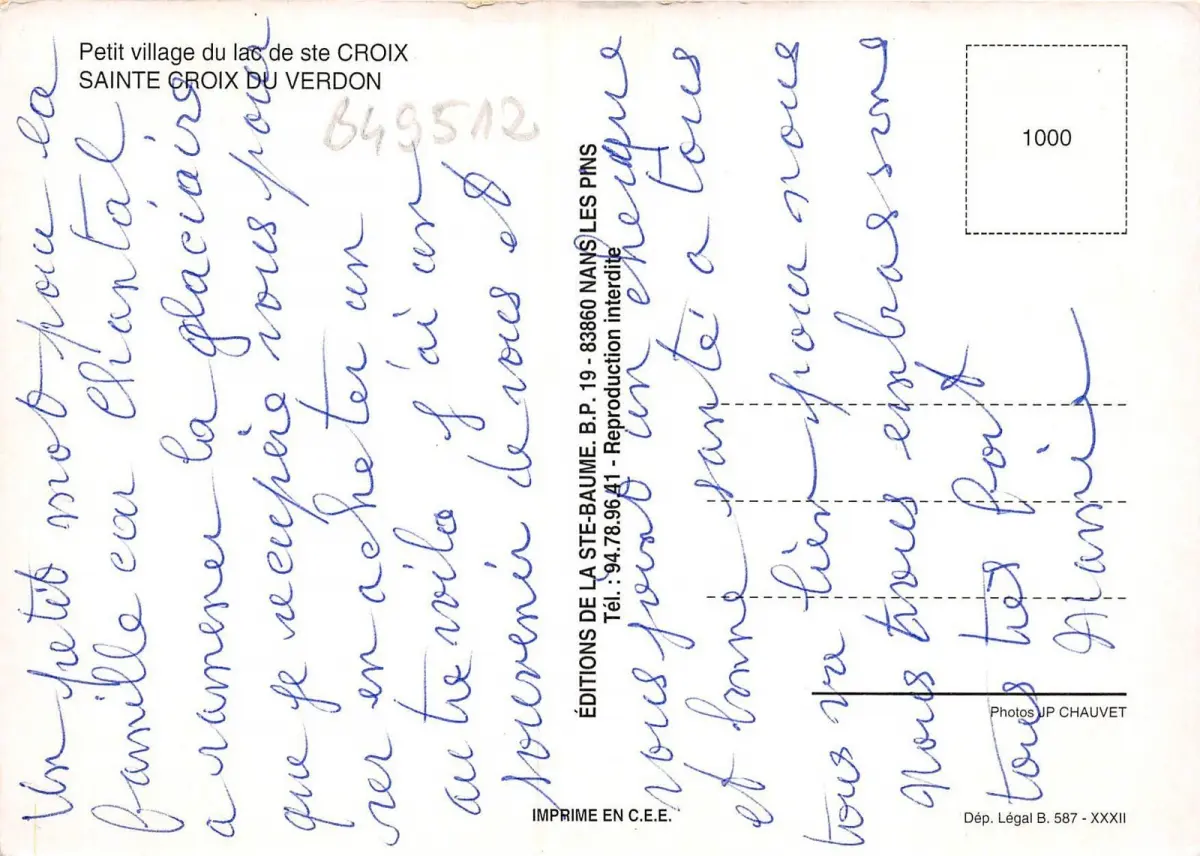 Petit village du lac de ste CROIX
SAINTE CROIX DU VERDON
B49512
1000
ÉDITIONS DE LA STE-BAUME. B.P. 19 - 83860 NANS LES PINS
Tél. : 94.78.96.41 - Reproduction interdite
Photos JP CHAUVET
IMPRIME EN C.E.E.
Dép. Légal B. 587 - XXXII
Un petit mot pour la
famille car Chantal
a ramener la glaciaire
que je recupère vous pouv
ver en acheter un
autre voila j'ai un
souvenir de vous et
vous joint un cheque
et bonne santé a tous
tous va bien pour nous
nous trous embrassons
tous très fort